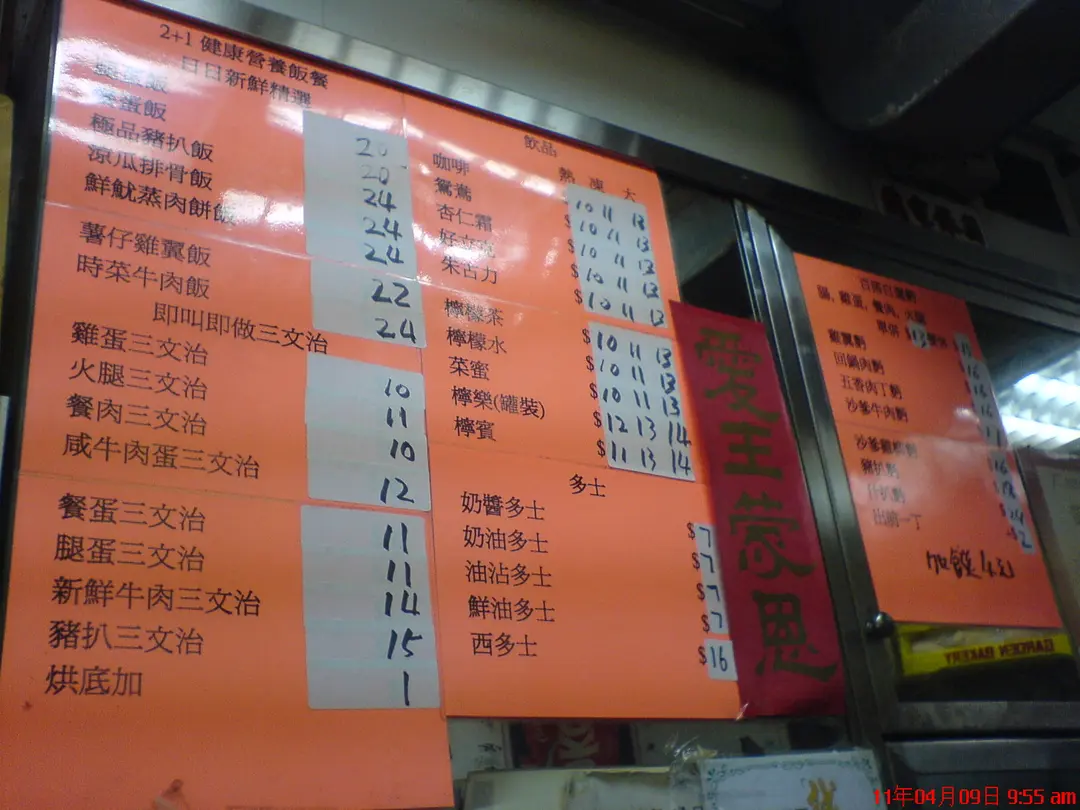 2+1 健康營養飯餐
日日新鮮精選
蛋飯 20
極品豬扒飯 20
涼瓜排骨飯 24
鮮魷蒸肉餅飯 24
24
薯仔雞翼飯 22
時菜牛肉飯 24
即叫即做三文治
雞蛋三文治 10
火腿三文治 11
餐肉三文治 10
咸牛肉蛋三文治 12
餐蛋三文治 11
腿蛋三文治 11
新鮮牛肉三文治 14
豬扒三文治 15
烘底加 1
飲品
熱 凍 大
咖啡 $10 11 13
鴛鴦 $10 11 13
杏仁霜 $10 11 13
好立克 $10 11 13
朱古力
檸檬茶 $10 11 13
檸檬水 $10 11 13
菜蜜 $10 11 13
檸樂(罐裝) $12 13 14
檸賓 $11 13 14
多士
奶醬多士 $7
奶油多士 $7
油沾多士 $7
鮮油多士 $7
西多士 $16
愛主蒙恩
腸, 雞蛋, 餐肉, 火腿
單併 $13 雙併
雞翼
回鍋肉
五香肉丁
沙爹牛肉
豬扒
出前一丁 $2
加餸4元
GARDEN BAKERY
11年04月09日 9:55 am